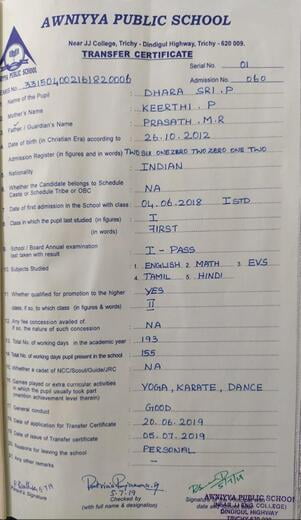 AWNIYYA PUBLIC SCHOOL
Near JJ College, Trichy - Dindigul Highway, Trichy - 620 009.
TRANSFER CERTIFICATE
AWNIYYA PUBLIC SCHOOL
Serial No. 01
EMIS No 33150400216182 0006
Admission No. 060
Name of the Pupil : DHARA SRI.P
Mother's Name : KEERTHI.P
Father / Guardian's Name : PRASATH.M.R
Date of birth (in Christian Era) according to : 26.10.2012
Admission Register (in figures and in words) TWO SIX ONE ZERO TWO ZERO ONE TWO
Nationality : INDIAN
Whether the Candidate belongs to Schedule
Caste or Schedule Tribe or OBC : NA
7. Date of first admission in the School with class : 04.06.2018 I STD
Class in which the pupil last studied (in figures) : I
(in words) : FIRST
School / Board Annual examination
last taken with result : I - PASS
10. Subjects Studied : 1. ENGLISH 2. MATH 3. EVS
4. TAMIL 5. HINDI
11. Whether qualified for promotion to the higher : YES
class, if so, to which class (in figures & words) : II
12. Any fee concession availed of.
if so, the nature of such concession : NA
13. Total No. of working days in the academic year : 193
14. Total No. of working days pupil present in the school : 155
15. Whether a cadet of NCC/Scout/Guide/JRC : NA
16. Games played or extra curricular activities
in which the pupil usually took part
(mention achievement level therein) : YOGA, KARATE, DANCE
General conduct : GOOD
Date of application for Transfer Certificate : 20.06.2019
Date of issue of Transfer certificate : 05.07.2019
Reasons for leaving the school : PERSONAL
Any other remarks : —
5.7.19
5/7/19
Checked by
(with full name & designation)
Signature
AWNIYYA PUBLIC SCHOOL
(NEAR JJ ENG. COLLEGE)
DINDIGUL HIGHWAY